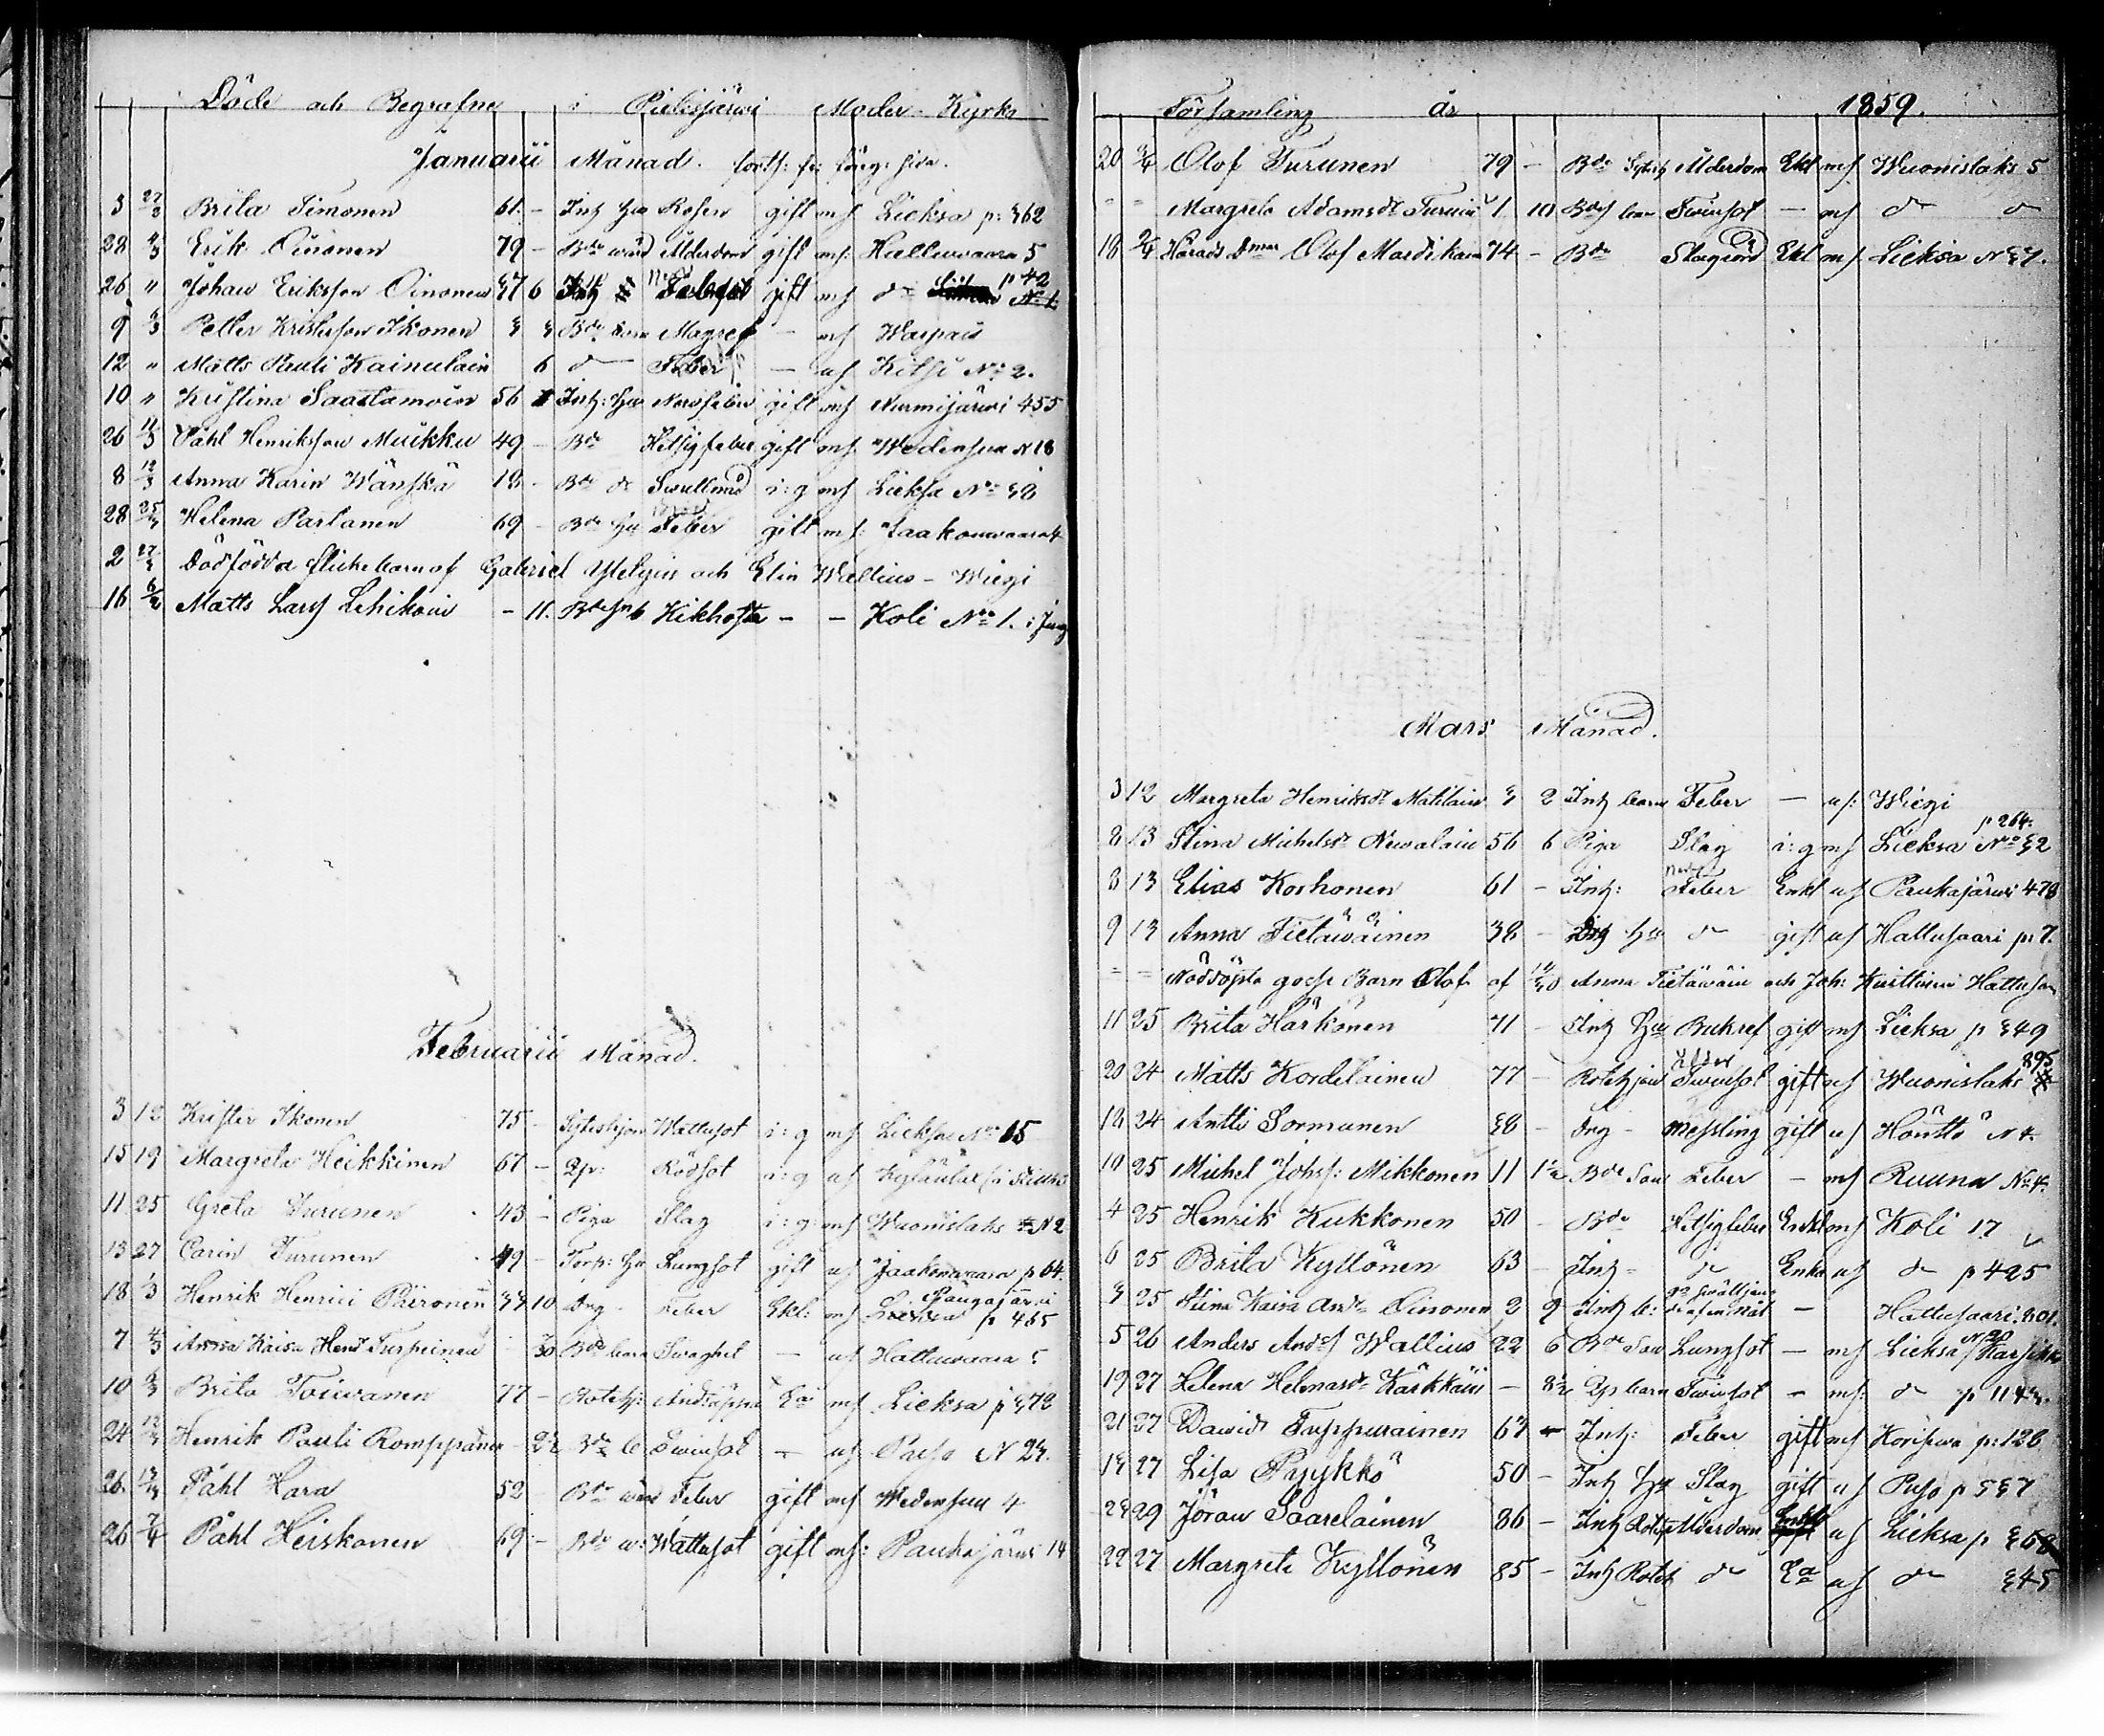 Döde och Begrafne i Pielisjärwi Moder-Kyrko
Januarii Månad. forts: fr: föreg: sida.
3 27/3 Brita Timonen 61 - Inh Hu Rosen gift mf Lieksa p: 362
28 2/3 Erik Oinonen 79 - Bde wärd Ålderdom gift mf: Hattuwaara 5
26 " Johan Eriksson Oinonen 37 6 gift mf do p 42 No 1
9 6/3 Petter Kristerson Ikonen 3 3 Bde son Magref - mf Warpais
12 " Matts Pauli Kainulain 6 do Feber - uf Kitsi No 2.
10 " Kristina Saastamoin 56 Inh: Hu Nervfeber gift mf Nurmijärwi 455
26 11/3 Påhl Henriksson Muikku 49 - Bde Hetsigfeber gift mf Wedensuu N 18
8 12/3 Anna Karin Wänskä 18 - Bde dr Swullnad i: g mf Lieksa No 38
28 25/3 Helena Partanen 69 - Bde Hu Feber gift mf: Jaakonwaara 4
2 27/3 Dödfödda flickebarn af Gabriel Ylelyin och Elin Wallius - Wiegi
16 6/2 Matts Larsf Lehikoin - 11. Bde Kikhosta - - Koli No 1.
Februarii Månad.
3 12 Krister Ikonen 75 - Wattusot i: g mf Lieksa No 15
15 19 Margreta Heikkinen 67 - Rp: Rödsot i: g uf
11 25 Greta Turunen 43 - Piga Slag i: g mf Wuonislaks N 2
13 27 Carin Turunen 49 - Torp: Hu Lungsot gift uf Jaakonwaara p 64.
18 1/3 Henrik Henrici Päironen 33 10 Ing - Feber Ekl: mf Pangajärwi p 455
7 4/3 Anna Kaisa Hend Turpeinen - 30 Bde barn - uf Hattuwaara 5
10 9/3 Brita Toiwanen 77 - Rotehj: Ea mf Lieksa p 372
24 12/3 Henrik Pauli Romppanen - Bde b Twinsot - uf Puso N 23.
26 13/3 Påhl Hara 52 Bde wärd Feber gift mf Wedensuu 4
26 7/4 Påhl Heiskanen 69 - Bde w: Wattusot gift mf: Pankajärwi 14
Församling år 1859.
20 3/4 Olof Turunen 79 - Bde Ålderdom Ekl mf Wuonislaks 5
= = Margreta Adamsdr Turuin 1 10 Bdes barn Twinsot - mf do do
18 2/4 Härads dmn Olof Mardikain 74 - Bde Ekl mf Lieksa N 37.
Mars Månad.
3 12 Margreta Henriksdr Matilain 3 2 Inh barn Feber - uf: Wiegi
8 13 Stina Michelsdr Newalain 56 6 Piga Slag i: g mf Lieksa p 264. No 32
8 13 Elias Korhonen 61 - Inh: Nerv Feber Enkl uf Pankajärwi 478
9 13 Anna Tietäwäinen 38 - Inh Hu do gift uf Hattusaari p: 7.
= = Nöddöpta gosse Barn Olof af Anna Tietäwäin och Joh: Kuittinen Hattusa
11 25 Brita Härkönen 71 - Inh Hu Bukref gift mf Lieksa p 349
20 24 Matts Kordelainen 77 - Rotehjon Twinsot gift uf Wuonislaks 895
12 24 Antti Sormunen 38 - Ing - Messling gift uf Höuttö N 4.
10 25 Michel Johsf: Mikkonen 11 1/2 Bde Son Feber - mf Ruuna No 4.
4 25 Henrik Kukkonen 50 - Bde Hetsigfeber Enkl mf Koli 17
6 25 Brita Kyllönen 63 - Inh - do Enka uf do p 425
3 25 Stina Kaisa Andr Oinonen 2 9 Inh b: - Hattusaari 801.
5 26 Anders Andsf Wallius 22 6 Bde Son Lungsot - mf Lieksa N 20
19 27 Helena Helenasdr Kärkkäin - Rp barn Twinsot - mf: do p 1143.
21 27 David Tuppurainen 67 - Inh: Feber gift mf p: 128
13 27 Lisa Papykkö 50 - Inh Hu Slag gift uf Puso p 537
23 29 Jöran Saarelainen 86 - Inh Ålderdom Enkl uf Lieksa p 368
22 27 Margreta Kyllönen 85 - Inh Roteh do Ea uf do 345